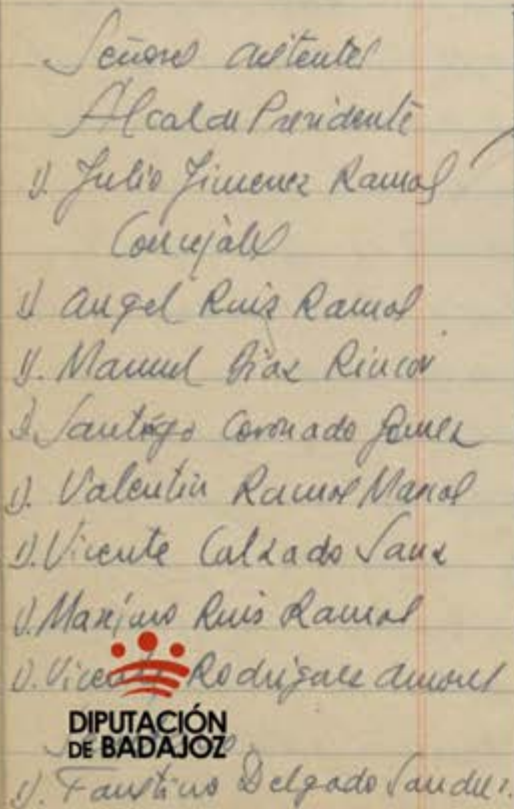 Señores asistentes
Alcalde Presidente
D. Julio Jimenez Ramos
Concejales
D. Angel Ruiz Ramos
D. Manuel Diaz Rincon
D. Santiago Coronado Gomez
D. Valentin Ramos Manos
D. Vicente Calzado Sanz
D. Maximo Ruis Ramos
D. Vicente Rodriguez Amores
DIPUTACIÓN
DE BADAJOZ
D. Faustino Delgado Sanchez.